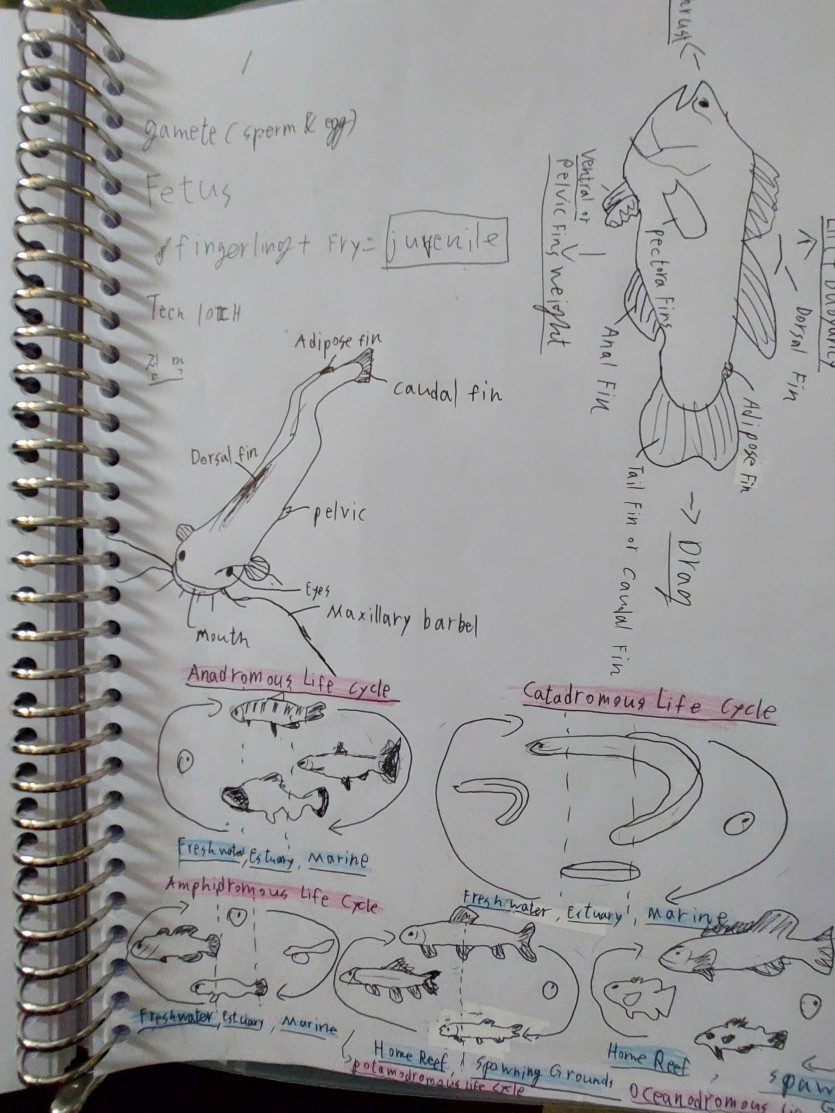 gamete (sperm & egg)
Fetus
fingerling + Fry = juvenile
Tech
Adipose fin
Caudal fin
Dorsal fin
pelvic
Eyes
Maxillary barbel
Mouth
Thrust
Ventral or
Pelvic Fins
Weight
pectora Fins
Dorsal Fin
Anal Fin
Adipose Fin
Tail Fin or Caudal Fin
Drag
Anadromous Life Cycle
Freshwater, Estuary, Marine
Catadromous Life Cycle
Freshwater, Estuary, Marine
Amphidromous Life Cycle
Freshwater, Estuary, Marine
Home Reef, Spawning Grounds
potamodromous life cycle
Home Reef, spaw
Oceanodromous